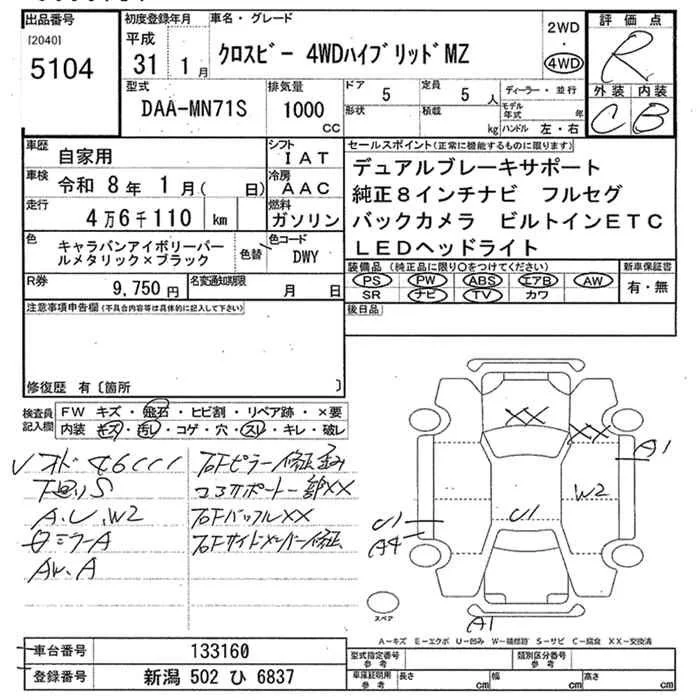 出品番号
[2040]
5104
初度登録年月
平成
31 1 月
車名・グレード
クロスビー 4WDハイブリッドMZ
2WD
・
4WD
評価点
R
外装 内装
C B
型式
DAA-MN71S
排気量
1000
CC
ドア 5
定員 5 人
形状
積載 kg
ディーラー・並行
モデル年式 年
ハンドル 左・右
車歴
自家用
シフト
IAT
車検
令和 8年 1月( 日)
冷房
AAC
走行
4万6千110 km
燃料
ガソリン
色
キャラバンアイボリーパー
ルメタリック×ブラック
色替
色コード
DWY
R券
9,750 円
名変通知期限
月 日
セールスポイント(正常に機能するものに限ります)
デュアルブレーキサポート
純正8インチナビ フルセグ
バックカメラ ビルトインETC
LEDヘッドライト
装備品 (純正品に限り○をつけてください)
PS PW ABS エアB AW
SR ナビ TV カワ
新車保証書
有・無
後日品
注意事項申告欄(不具合内容等は具体的に記入して下さい)
修復歴 有〔箇所 〕
検査員
記入欄
FW キズ・飛石・ヒビ割・リペア跡・×要
内装 キズ・汚レ・コゲ・穴・スレ・キレ・破レ
下廻リS
A.U.W2
A
AW.A
右Fピラー修正歪み
コアサポート一部XX
右Fバッフル XX
右Fサイドメンバー修正
XX
XX
A1
W2
U1
U1
A4
A1
スペア
A-キズ E-エクボ U-凹み W-補修跡 S-サビ C-腐食 XX-交換済
車台番号
133160
登録番号
新潟 502 ひ 6837
型式指定番号
参考
類別区分番号
参考
車庫証明用
参考
長さ cm
幅 cm
高さ cm